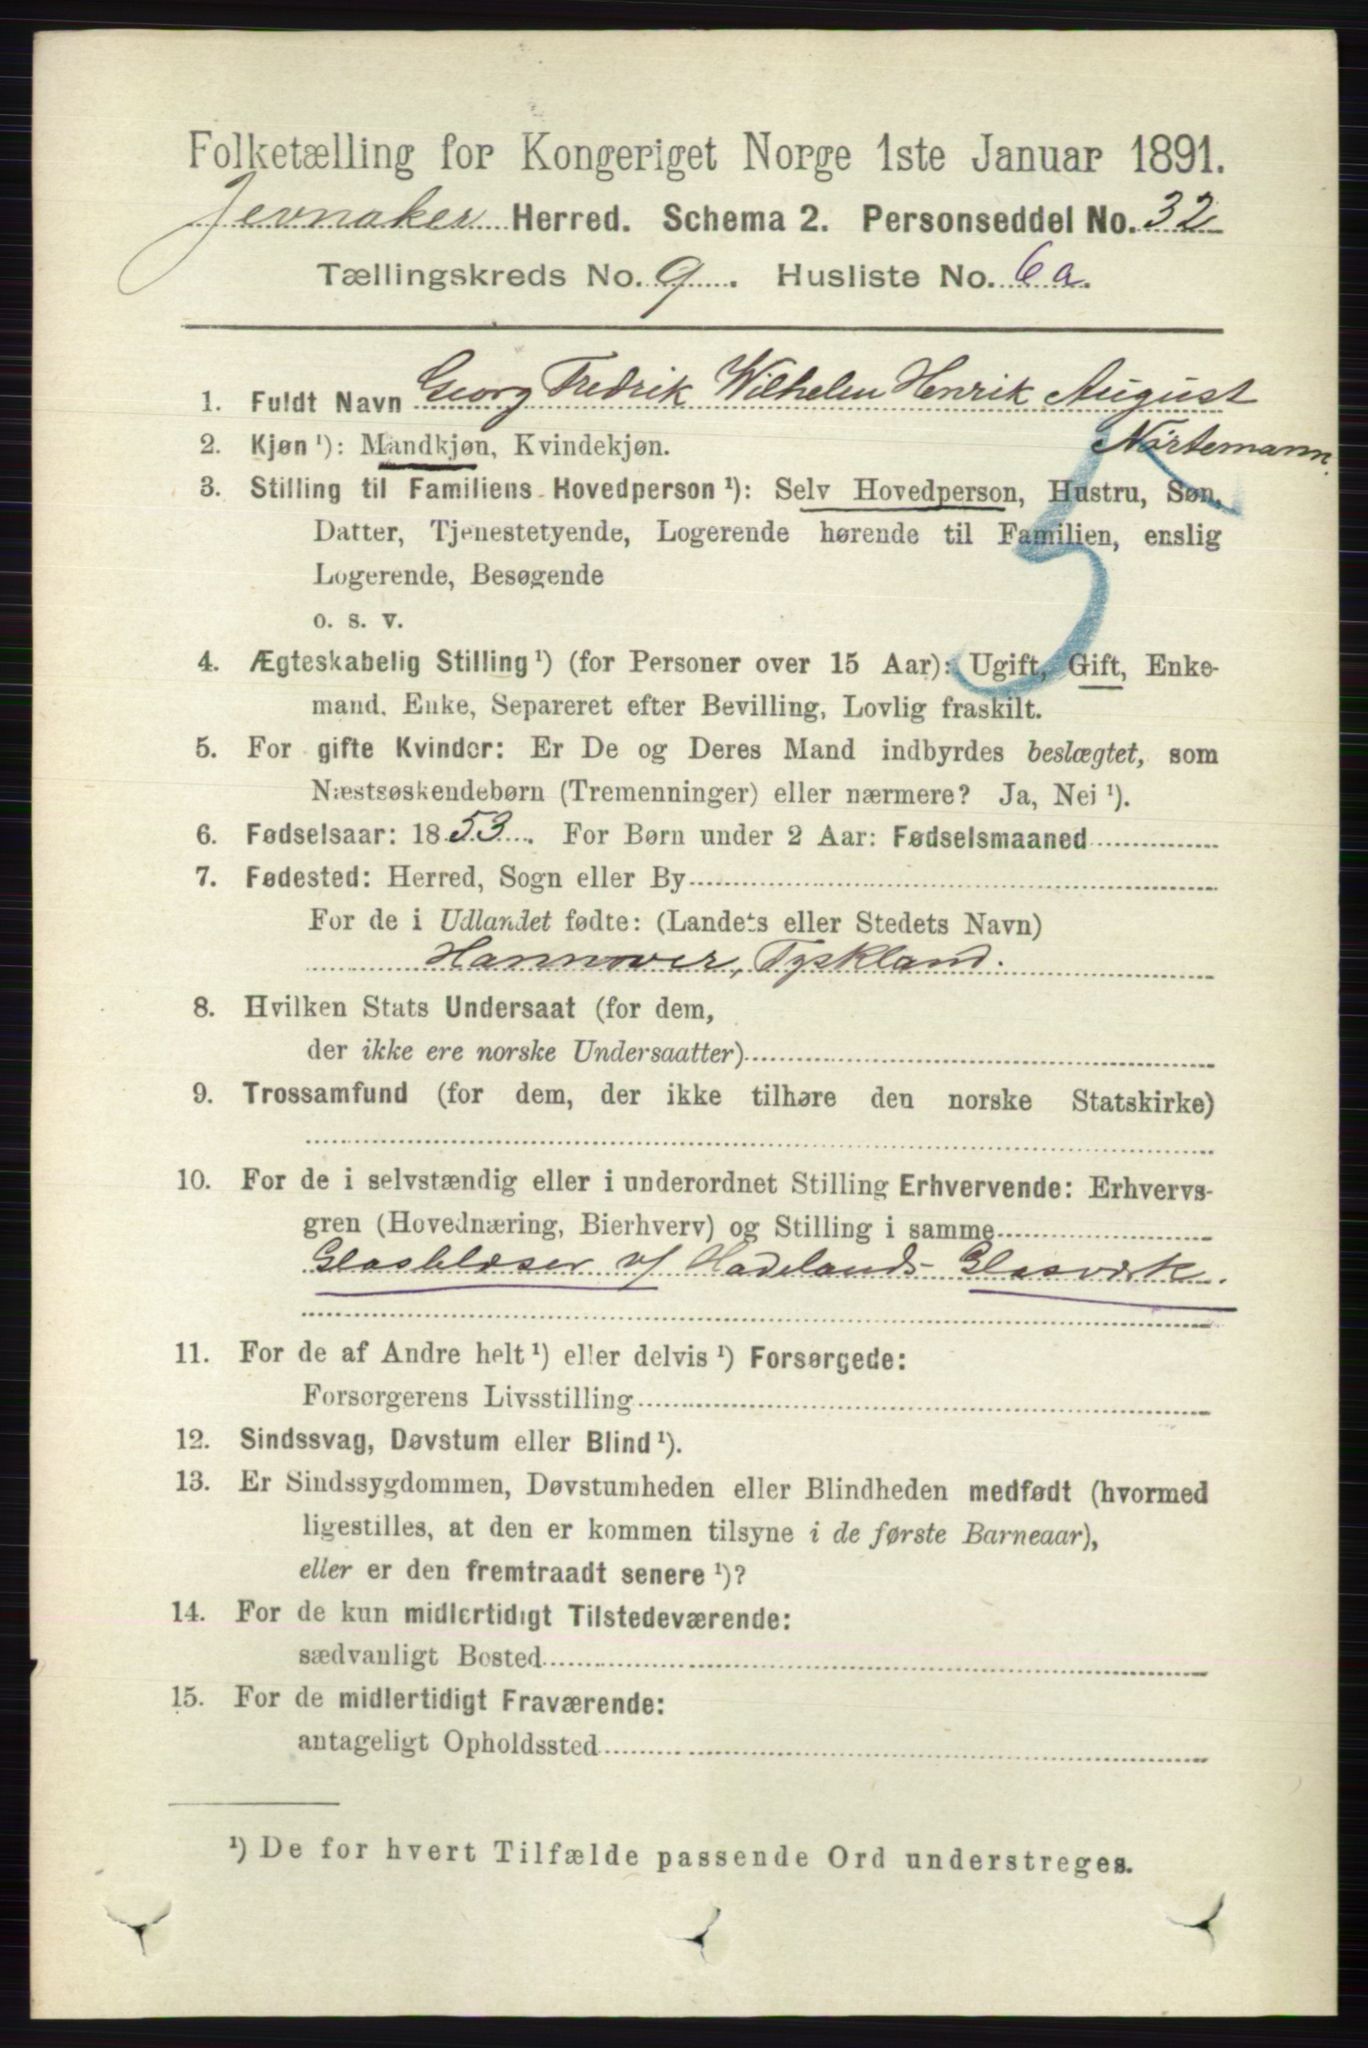 Folketælling for Kongeriget Norge 1ste Januar 1891.
Jevnaker Herred. Schema 2. Personseddel No. 32
Tællingskreds No. 9. Husliste No. 6a.
1. Fuldt Navn Georg Fredrik Wilhelm Henrik August
Nörtemann.
2. Kjøn ¹): Mandkjøn, Kvindekjøn.
3. Stilling til Familiens Hovedperson ¹): Selv Hovedperson, Hustru, Søn,
Datter, Tjenestetyende, Logerende hørende til Familien, enslig
Logerende, Besøgende
o. s. v.
4. Ægteskabelig Stilling ¹) (for Personer over 15 Aar): Ugift, Gift, Enke-
mand, Enke, Separeret efter Bevilling, Lovlig fraskilt.
5. For gifte Kvinder: Er De og Deres Mand indbyrdes beslægtet, som
Næstsøskendebørn (Tremenninger) eller nærmere? Ja, Nei ¹).
6. Fødselsaar: 1853. For Børn under 2 Aar: Fødselsmaaned
7. Fødested: Herred, Sogn eller By
For de i Udlandet fødte: (Landets eller Stedets Navn)
Hannover, Tyskland.
8. Hvilken Stats Undersaat (for dem,
der ikke ere norske Undersaatter)
9. Trossamfund (for dem, der ikke tilhøre den norske Statskirke)
10. For de i selvstændig eller i underordnet Stilling Erhvervende: Erhvervs-
gren (Hovednæring, Bierhverv) og Stilling i samme
Glasblæser v/ Hadelands Glasværk.
11. For de af Andre helt ¹) eller delvis ¹) Forsørgede:
Forsørgerens Livsstilling
12. Sindssvag, Døvstum eller Blind ¹).
13. Er Sindssygdommen, Døvstumheden eller Blindheden medfødt (hvormed
ligestilles, at den er kommen tilsyne i de første Barneaar),
eller er den fremtraadt senere ¹)?
14. For de kun midlertidigt Tilstedeværende:
sædvanligt Bosted
15. For de midlertidigt Fraværende:
antageligt Opholdssted
¹) De for hvert Tilfælde passende Ord understreges.